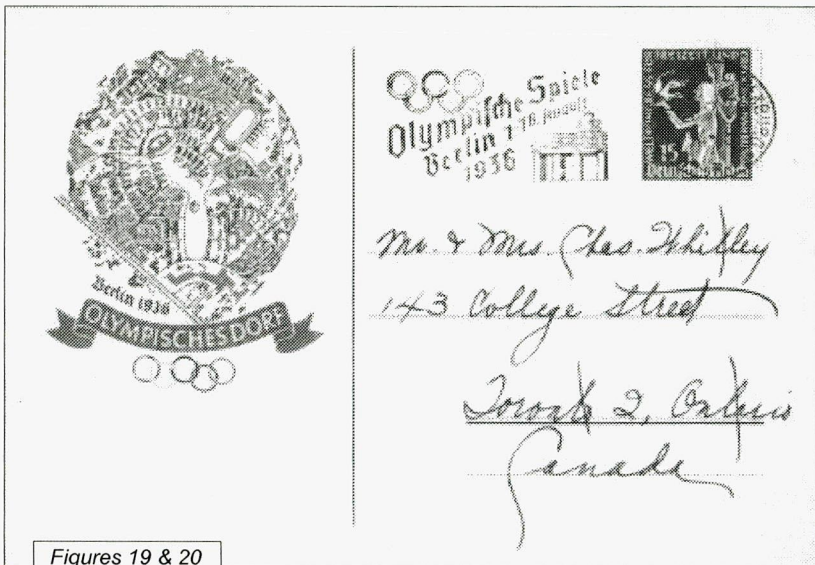 Berlin 1936
OLYMPISCHES DORF
Olympische Spiele
Berlin 1.-16. August
1936
15
Mr. & Mrs. Chas. Whitley
143 College Street
Toronto 2, Ontario
Canada
Figures 19 & 20